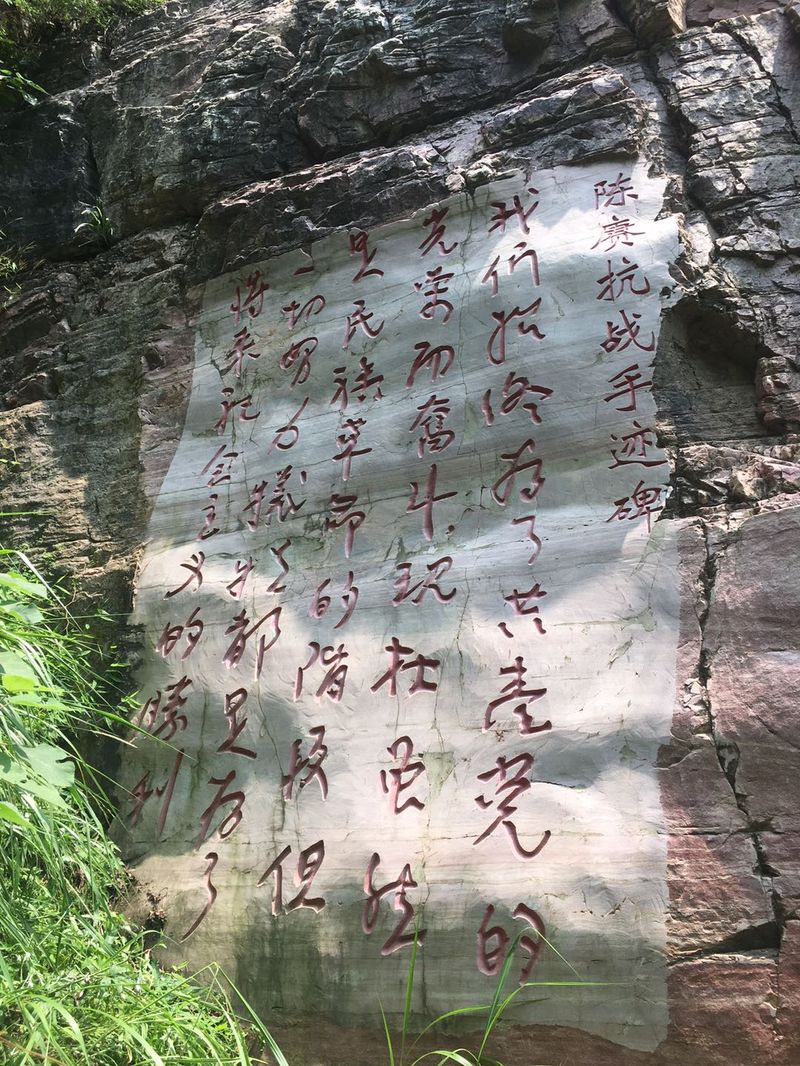 陈赓抗战手迹碑
我们始终为了共産党的
光荣而奋斗.现在虽然
是民族革命的階段但
一切努力犠牲都是为了
将来社会主义的勝利